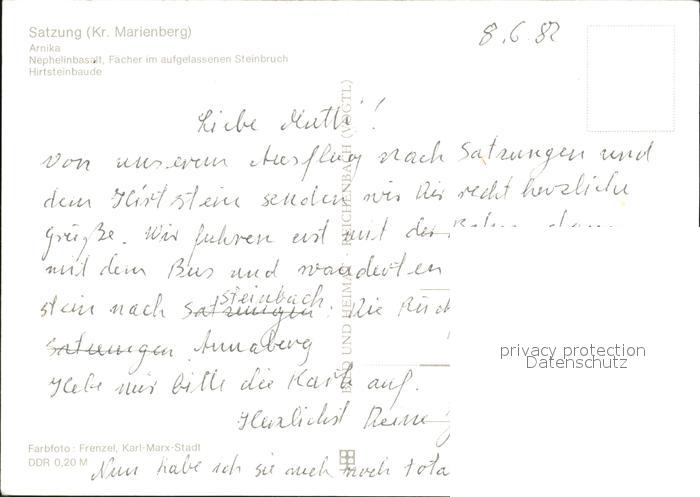 Satzung (Kr. Marienberg)
Arnika
Nephelinbasalt, Fächer im aufgelassenen Steinbruch
Hirtsteinbaude
8.6.82
Liebe Mutti!
Von unserem Ausflug nach Satzungen und
dem Hirtstein senden wir Dir recht herzliche
Grüße. Wir fuhren erst mit der Bahn, dann
mit dem Bus und wanderten
steinbach
stein nach Satzungen. Die Rück
Satzungen Annaberg
Hebe mir bitte die Karte auf.
Herzlichst Deine
Nun habe ich sie auch noch tota
BILD UND HEIMAT · REICHENBACH (VOGTL)
Farbfoto: Frenzel, Karl-Marx-Stadt
DDR 0,20 M
privacy protection
Datenschutz